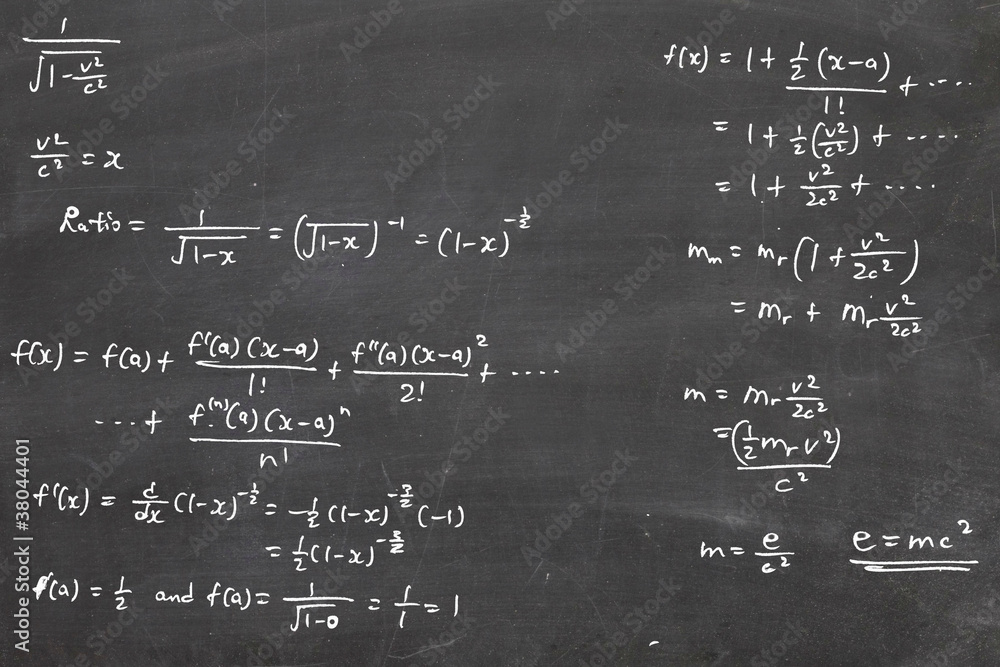 1/√(1-v²/c²)
v²/c² = x
Ratio = 1/√(1-x) = (√(1-x))⁻¹ = (1-x)^(-1/2)
f(x) = f(a) + f'(a)(x-a)/1! + f''(a)(x-a)²/2! + ....
...+ f⁽ⁿ⁾(a)(x-a)ⁿ/n!
f'(x) = d/dx (1-x)^(-1/2) = -1/2 (1-x)^(-3/2) (-1)
= 1/2 (1-x)^(-3/2)
f'(a) = 1/2 and f(a) = 1/√(1-0) = 1/1 = 1
f(x) = 1 + 1/2 (x-a)/1! + ....
= 1 + 1/2 (v²/c²) + ....
= 1 + v²/2c² + ....
mₘ = mᵣ(1 + v²/2c²)
= mᵣ + mᵣ v²/2c²
m = mᵣ v²/2c²
= (1/2 mᵣ v²)/c²
m = e/c²
e = mc²
Adobe Stock | #38044401
Adobe Stock